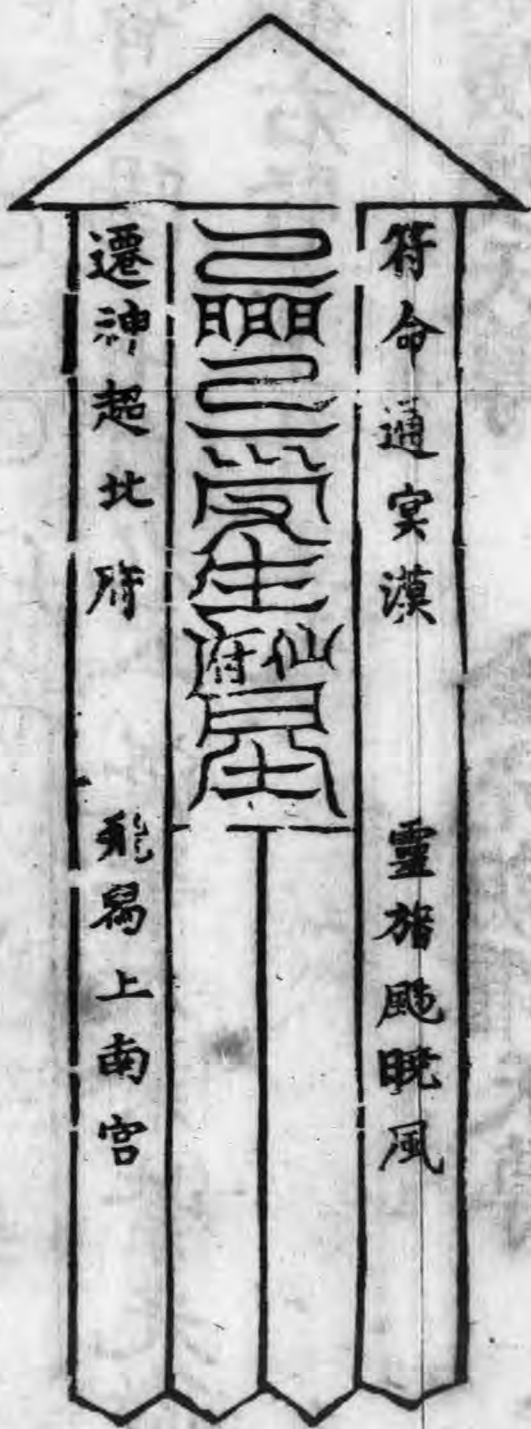 符命通冥漠 靈旛颺曉風
仙府
遷神超北府 飛舄上南宮